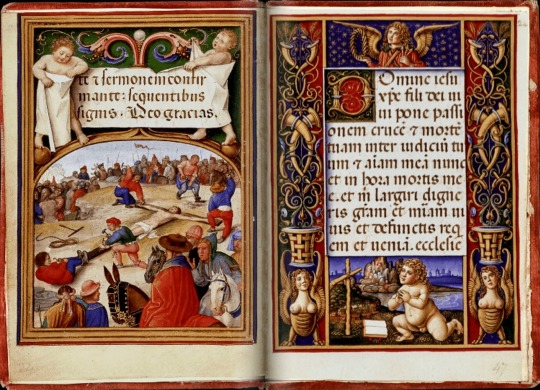 te & sermonem confir
mante: sequentibus
signis. Deo gracias.
Domine iesu
xp̄e fili dei ui
ui pone passi
onem crucē & mortē
tuam inter iudiciū tu
um & aīam meā nunc
et in hora mortis me
e. et m̄ largiri digne
ris gr̄am et m̄iam ui
uis et defunctis req̄
em et ueniā. ecclesie